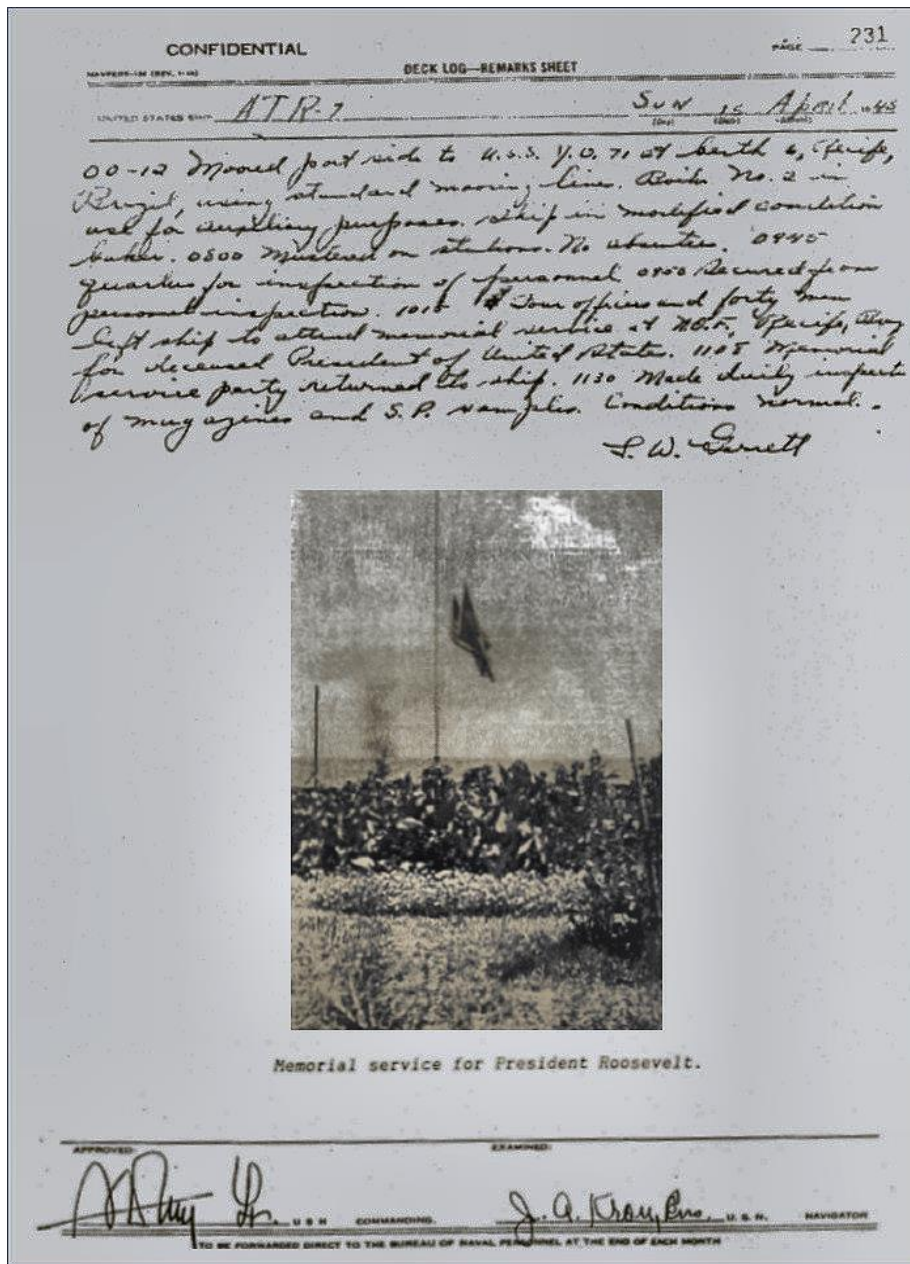 CONFIDENTIAL
PAGE 231
DECK LOG—REMARKS SHEET
UNITED STATES SHIP ATR-7 SUN 15 April 1945
(Day) (Date) (Month)
00-12 Moored port side to U.S.S. Y.O. 71 at berth 6, Recife,
Brazil, using standard mooring lines. Boiler No. 2 in
use for auxiliary purposes. Ship in modified condition
baker. 0800 Mustered on stations. No absentees. 0945
quarters for inspection of personnel 0950 Secured from
personnel inspection. 1015 Four officers and forty men
left ship to attend memorial service at Recife,
for deceased President of United States. 1105 Memorial
service party returned to ship. 1130 Made daily inspect
of magazines and S.P. samples. Conditions normal.
L. W. Garrett
Memorial service for President Roosevelt.
APPROVED: EXAMINED:
U S N COMMANDING. J. A. Krou, Ens. U. S. N. NAVIGATOR
TO BE FORWARDED DIRECT TO THE BUREAU OF NAVAL PERSONNEL AT THE END OF EACH MONTH